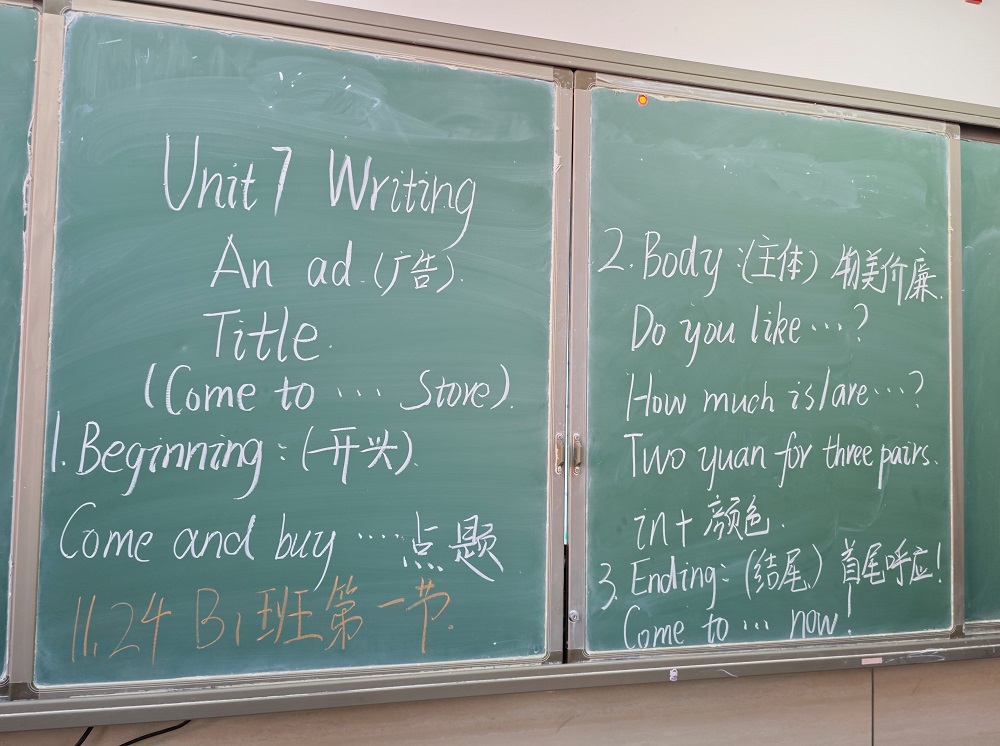 Unit 7 Writing
An ad.(广告).
Title.
(Come to ... Store).
1. Beginning: (开头).
Come and buy ....点题
11.24 B1班第一节.
2. Body:(主体) 物美价廉.
Do you like ...?
How much is/are...?
Two yuan for three pairs.
in+颜色.
3. Ending: (结尾) 首尾呼应!
Come to ... now!